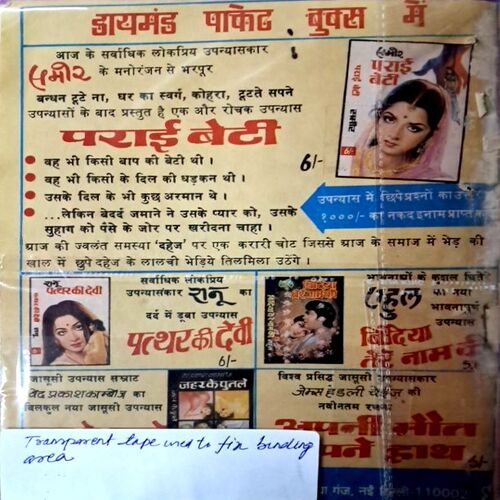 डायमंड पाकेट बुक्स में
आज के सर्वाधिक लोकप्रिय उपन्यासकार
समीर के मनोरंजन से भरपूर
बन्धन टूटे ना, घर का स्वर्ग, कोहरा, टूटते सपने
उपन्यासों के बाद प्रस्तुत है एक और रोचक उपन्यास
पराई बेटी
वह भी किसी बाप की बेटी थी।
वह भी किसी के दिल की धड़कन थी।
उसके दिल के भी कुछ अरमान थे।
...लेकिन बेदर्द जमाने ने उसके प्यार को, उसके
सुहाग को पैसे के जोर पर खरीदना चाहा।
6/-
समीर
पराई
बेटी
6/-
उपन्यास में छिपे प्रश्नों का
१०००/- का नकद इनाम प्राप्त
आज की ज्वलंत समस्या 'दहेज' पर एक करारी चोट जिससे आज के समाज में भेड़ की
खाल में छुपे दहेज के लालची भेड़िये तिलमिला उठेंगे।
रानू
पत्थर की देवी
सर्वाधिक लोकप्रिय
उपन्यासकार रानू का
दर्द में डूबा उपन्यास
पत्थर की देवी
6/-
भावनाओं के कुशल चितेरे
राहुल का नया
भावनापूर्ण
उपन्यास
बिंदिया
तेरे नाम की
5/-
जासूसी उपन्यास सम्राट
वेद प्रकाश काम्बोज का
बिलकुल नया जासूसी उपन्यास
जहर के पुतले
विश्व प्रसिद्ध जासूसी उपन्यासकार
जेम्स हेडली चेइज़ की
नवीनतम रचना
अपनी मौत
अपने हाथ
5/-
गंज, नई दिल्ली-11000
Transparent tape used to fix binding
area